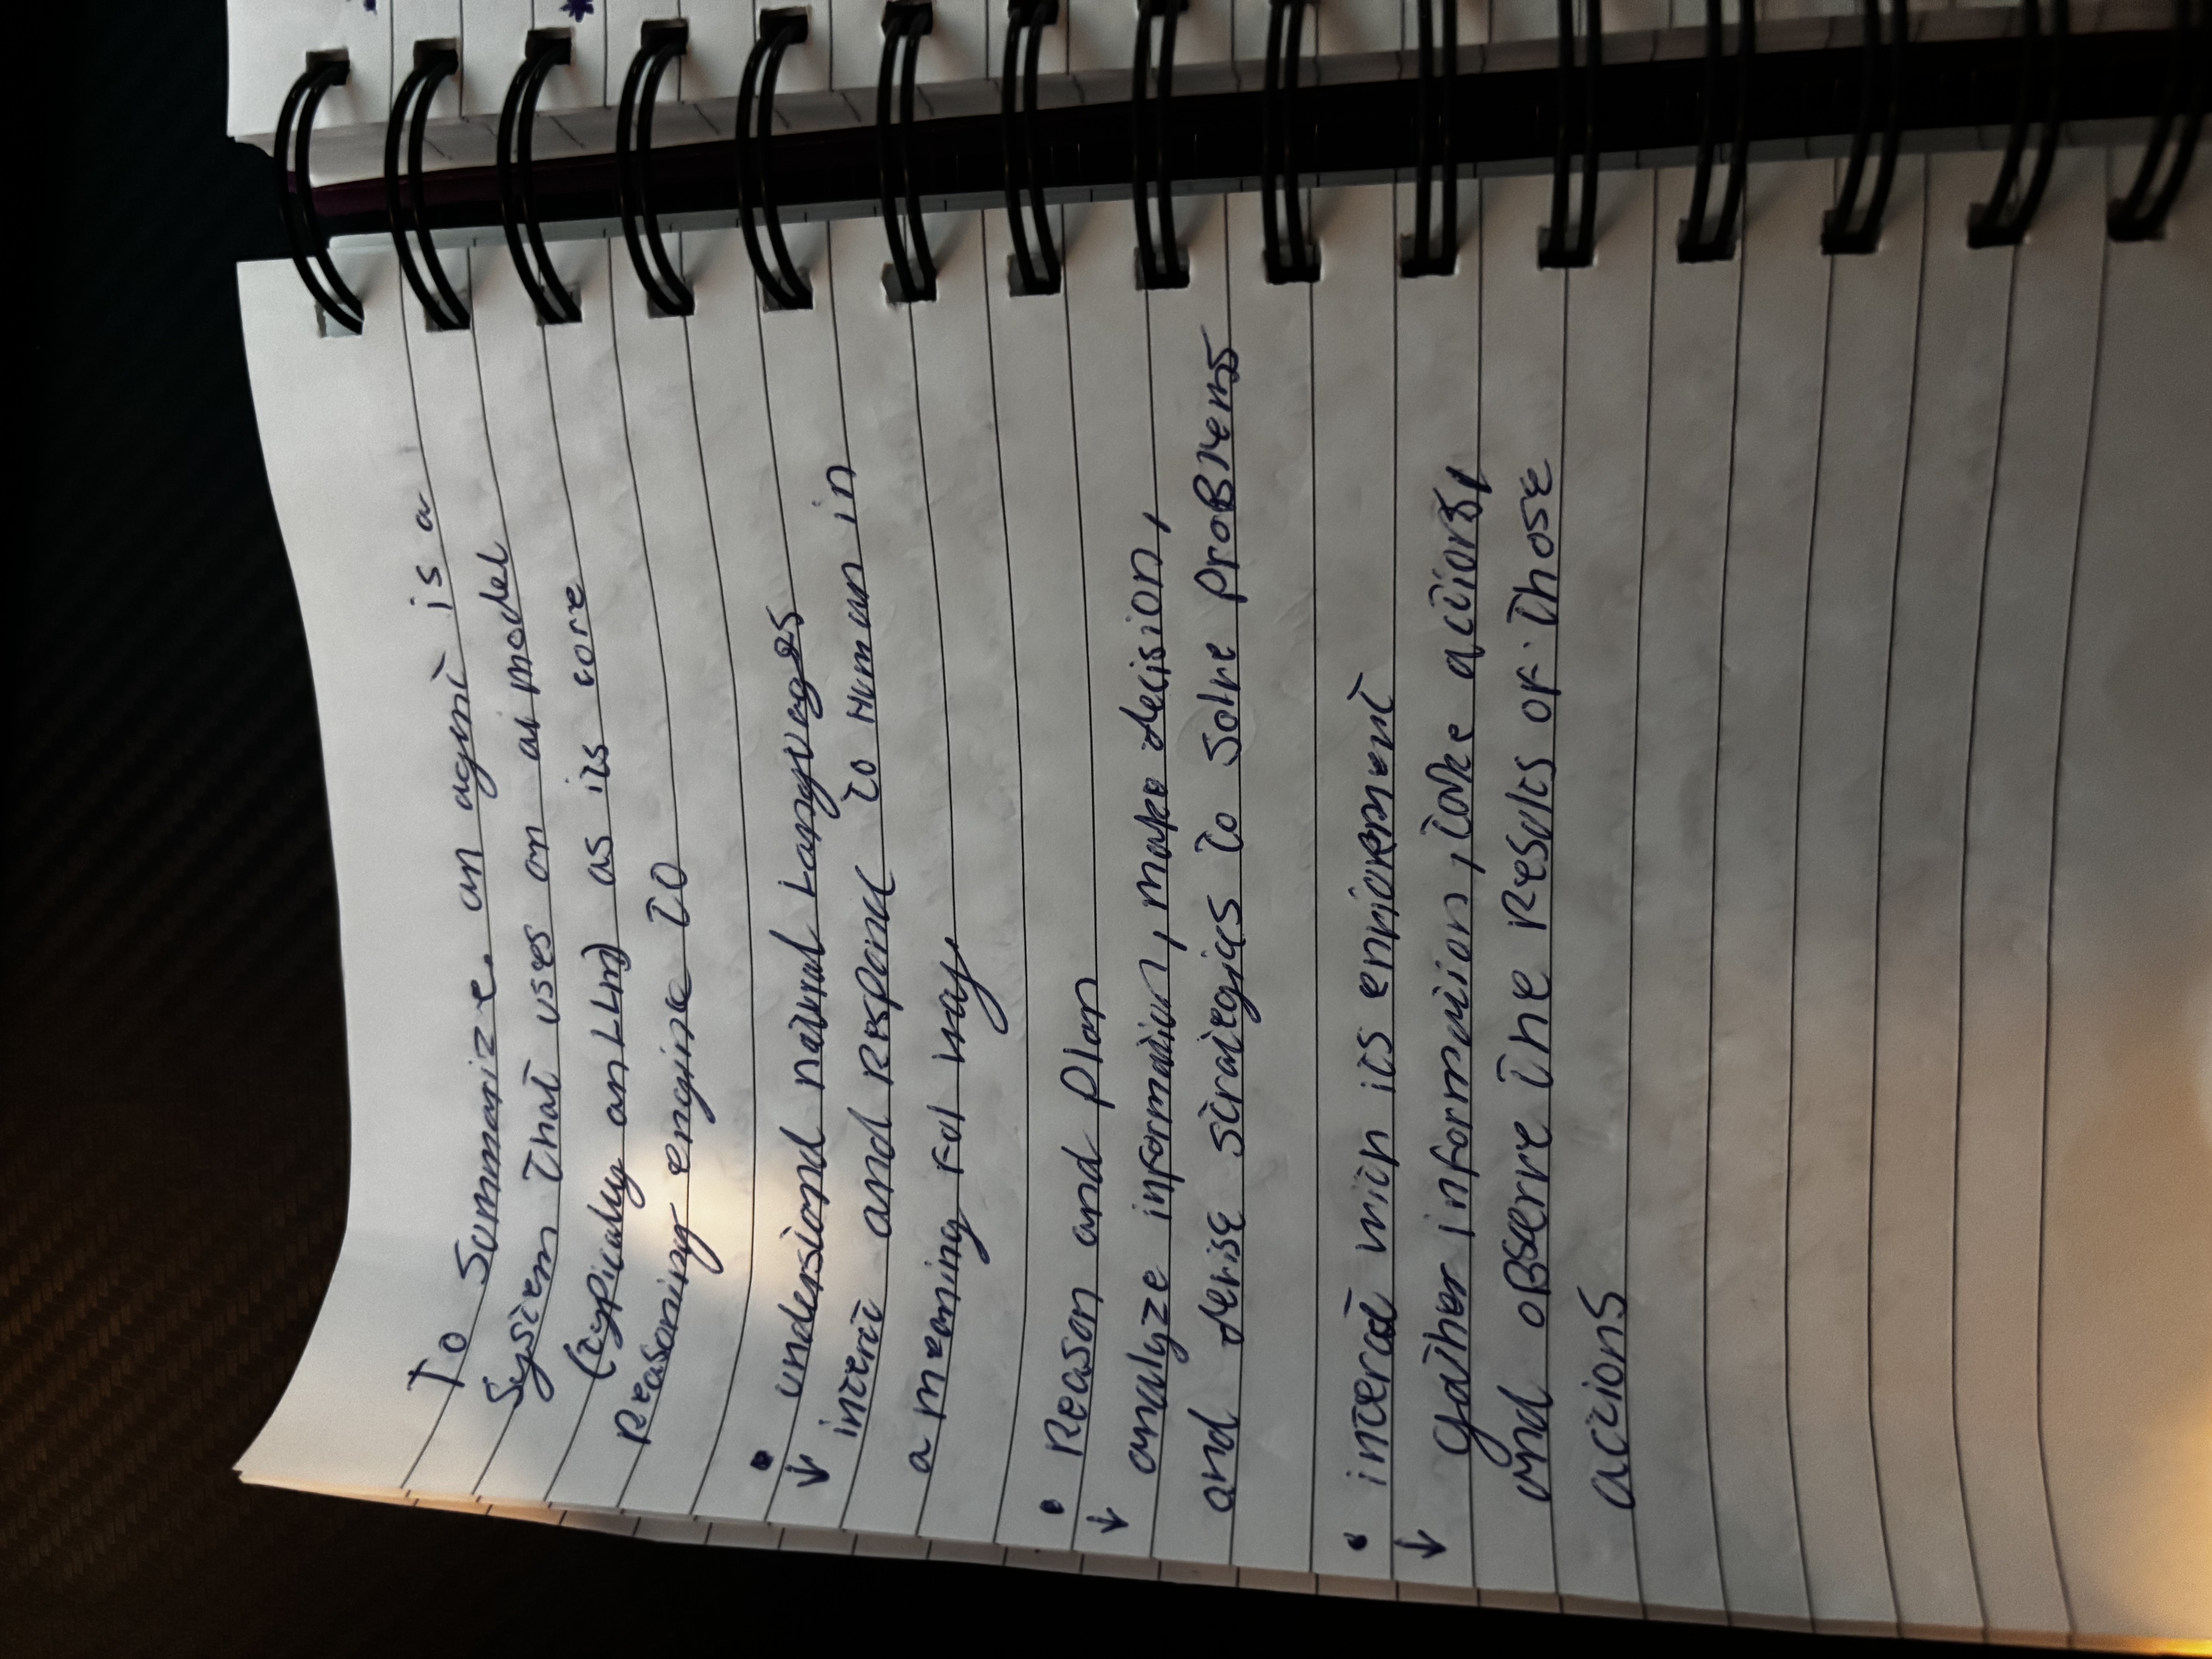 To Summarize. an agent is a
System that uses an ai model
(typically an LLm) as its core
Reasoning engine to
• understand natural Languages
↓ interct and Respond to Human in
a meaning Ful way.
• Reason and plan
↓ analyze information, make decision,
and devise strategies to solve problems
• interact with its enviorement
↓ gather information, take actions,
and observe the Results of those
actions